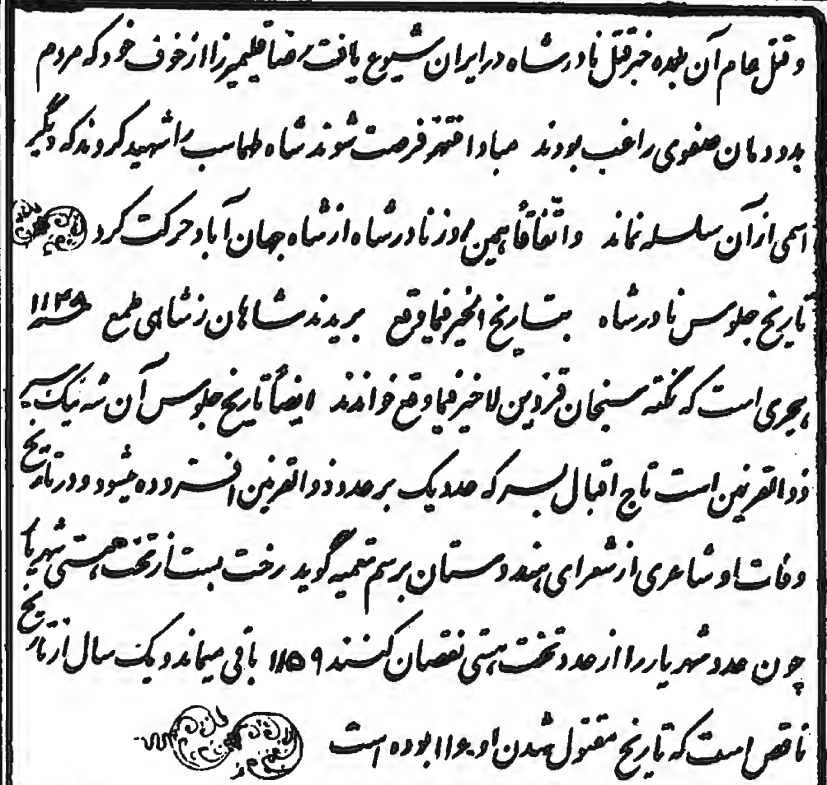 و قتل عام آن بلده خبر قتل نادرشاه در ایران شیوع یافت رضاقلیمیرزا از خوف خود که مردم
بدودمان صفوی راغب بودند مبادا فتنه فرصت شوند شاه طهماسب را شهید کردند که دیگر
اسمی از آن سلسله نماند و اتّفاقاً همین روز نادرشاه از شاه جهان آباد حرکت کرد
تاریخ جلوس نادرشاه بتاریخ الخیر فیما وقع بریدند شاهان ز شاهی طمع ۱۱۴۸ سنه
هجری است که نکته سنجان قزوین لاخیر فیما وقع خواندند ایضاً تاریخ جلوس آن شه نیک سیر
ذوالقرنین است تاج اقبال بسر که عدد یک بر عدد ذوالقرنین افزوده میشود و در تاریخ
وفات او شاعری از شعرای هندوستان برسم تعمیه گوید رخت بست از تخت هستی شهریار
چون عدد شهریار را از عدد تخت هستی نقصان کنند ۱۱۵۹ باقی میماند و یک سال از تاریخ
ناقص است که تاریخ مقتول شدن او بوده است